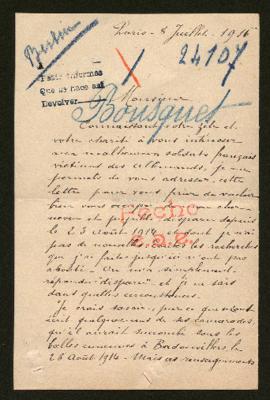 Berlin
Paris - 8 Juillet - 1916
24107
Pedir informes
Que se hace así
Devolver
Bousquet
Monsieur
Connaissant votre zèle et
votre charité à vous intéresser
aux malheureux soldats français
victimes des allemands, je me
permets de vous adresser cette
lettre pour vous prier de vouloir
bien vous occuper
disparu depuis
le 25 août 1914 et dont je n'ai
pas de nouvelles. Toutes les recherches
que j'ai faites jusqu'ici n'ont pas
abouti - On m'a simplement
répondu "disparu" et je ne sais
dans quelles circonstances.
Je crois savoir, par ce que
dit quelques-uns de ses camarades,
qu'il aurait succombé sous les
balles ennemies à Badonvillers, le
25 Août 1914 - Mais ces renseignements